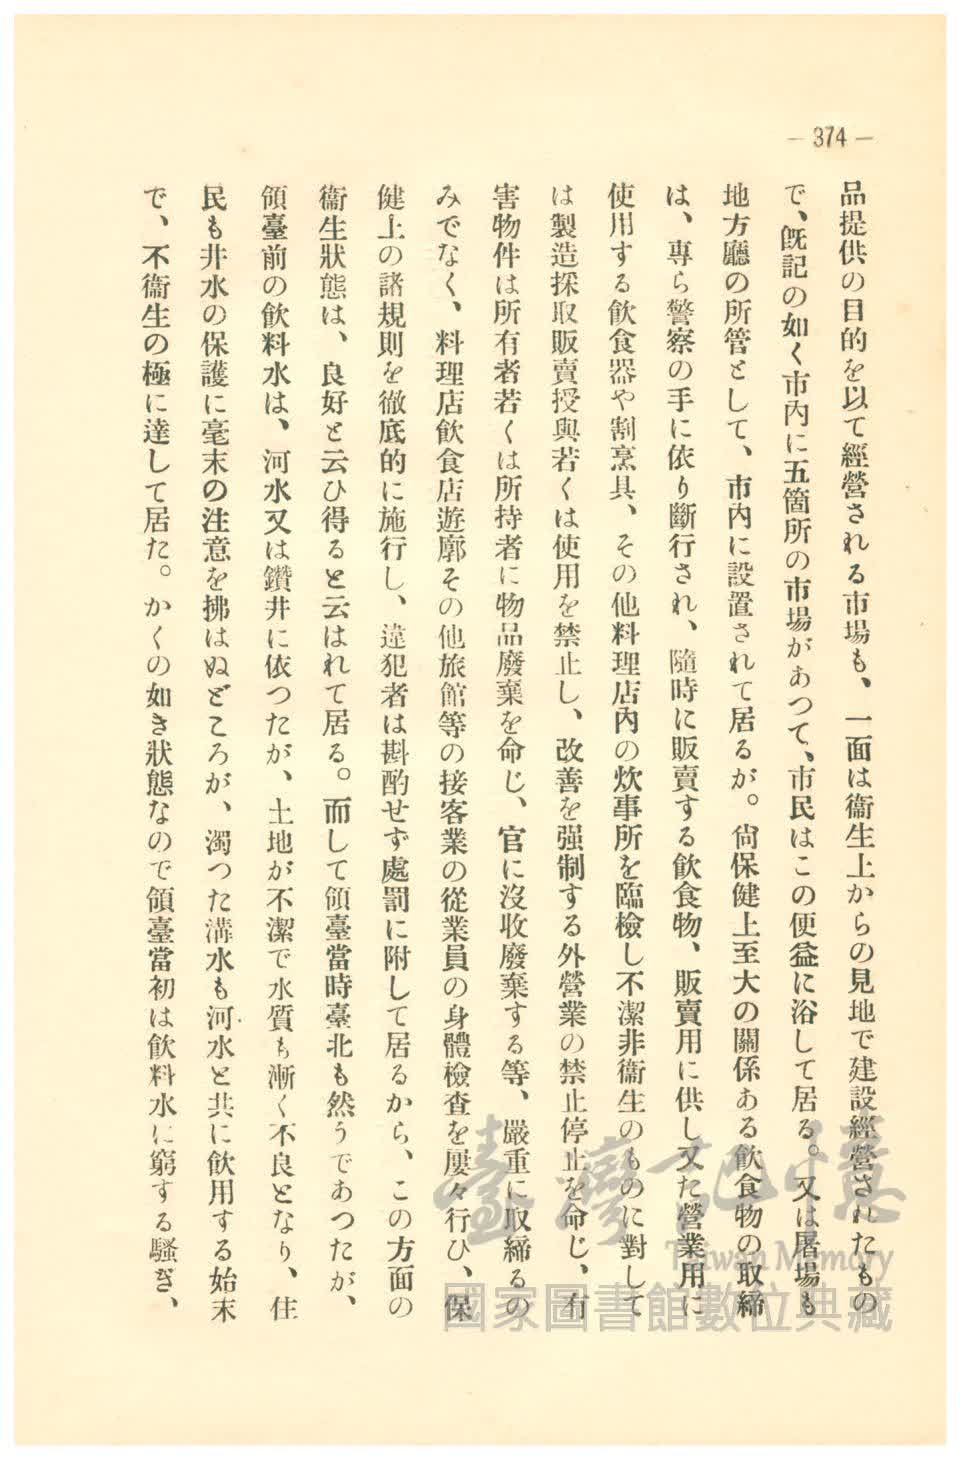 — 374 —
品提供の目的を以て經營される市場も、一面は衞生上からの見地で建設經營されたもの
で、既記の如く市內に五箇所の市場があつて、市民はこの便益に浴して居る。又は屠場も
地方廳の所管として、市內に設置されて居るが。尙保健上至大の關係ある飮食物の取締
は、專ら警察の手に依り斷行され、隨時に販賣する飮食物、販賣用に供し又た營業用に
使用する飮食器や割烹具、その他料理店內の炊事所を臨檢し不潔非衞生のものに對して
は製造採取販賣授與若くは使用を禁止し、改善を强制する外營業の禁止停止を命じ、有
害物件は所有者若くは所持者に物品廢棄を命じ、官に沒收廢棄する等、嚴重に取締るの
みでなく、料理店飮食店遊廓その他旅館等の接客業の從業員の身體檢査を屢々行ひ、保
健上の諸規則を徹底的に施行し、違犯者は斟酌せず處罰に附して居るから、この方面の
衞生狀態は、良好と云ひ得ると云はれて居る。而して領臺當時臺北も然うであつたが、
領臺前の飮料水は、河水又は鑽井に依つたが、土地が不潔で水質も漸く不良となり、住
民も井水の保護に毫末の注意を拂はぬどころが、濁つた溝水も河水と共に飮用する始末
で、不衞生の極に達して居た。かくの如き狀態なので領臺當初は飮料水に窮する騷ぎ、
臺灣記憶
Taiwan Memory
國家圖書館數位典藏